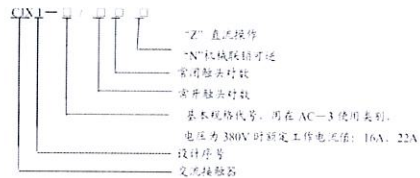 CJX1-□/□□□
"Z"直流操作
"N"机械联锁可逆
常闭触头对数
常开触头对数
基本规格代号，用在AC-3使用类别，
电压为380V时额定工作电流值：16A、22A
设计序号
交流接触器